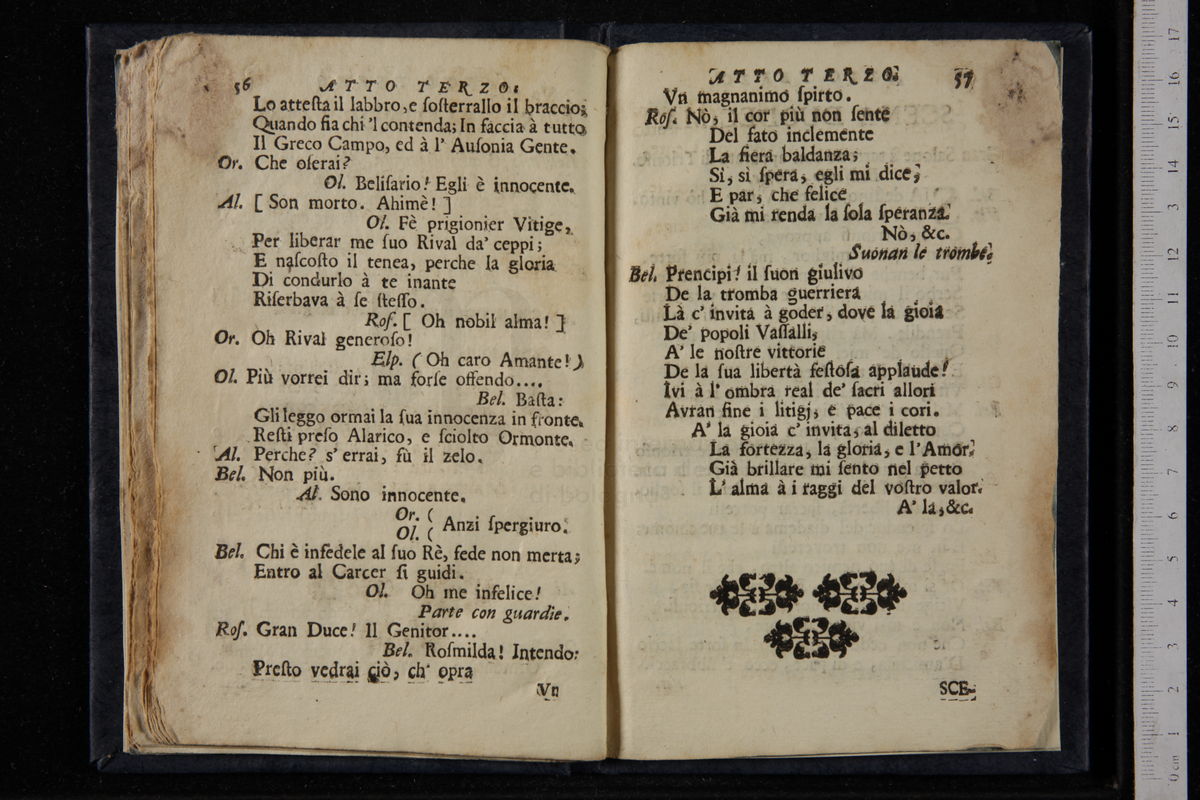 56 ATTO TERZO.
Lo attesta il labbro, e sosterrallo il braccio;
Quando fia chi 'l contenda; In faccia à tutto
Il Greco Campo, ed à l' Ausonia Gente.
Or. Che oserai?
Ol. Belisario! Egli è innocente.
Al. [ Son morto. Ahimè! ]
Ol. Fè prigionier Vitige,
Per liberar me suo Rival da' ceppi;
E nascosto il tenea, perche la gloria
Di condurlo à te inante
Riserbava à se stesso.
Ros. [ Oh nobil alma! ]
Or. Oh Rival generoso!
Elp. ( Oh caro Amante! )
Ol. Più vorrei dir; ma forse offendo....
Bel. Basta:
Gli leggo ormai la sua innocenza in fronte.
Resti preso Alarico, e sciolto Ormonte.
Al. Perche? s' errai, fù il zelo.
Bel. Non più.
Al. Sono innocente.
Or. (
Ol. ( Anzi spergiuro.
Bel. Chi è infedele al suo Rè, fede non merta;
Entro al Carcer si guidi.
Ol. Oh me infelice!
Parte con guardie.
Ros. Gran Duce! Il Genitor....
Bel. Rosmilda! Intendo:
Presto vedrai ciò, ch' opra
Vn
ATTO TERZO. 57
Vn magnanimo spirto.
Ros. Nò, il cor più non sente
Del fato inclemente
La fiera baldanza;
Sì, sì spera, egli mi dice;
E par, che felice
Già mi renda la sola speranza.
Nò, &c.
Suonan le trombe.
Bel. Prencipi! il suon giulivo
De la tromba guerriera
Là c' invita à goder, dove la gioia
De' popoli Vassalli,
A' le nostre vittorie
De la sua libertà festosa applaude!
Ivi à l' ombra real de' sacri allori
Avran fine i litigj, e pace i cori.
A' la gioia c' invita, al diletto
La fortezza, la gloria, e l'Amor.
Già brillare mi sento nel petto
L' alma à i raggi del vostro valor.
A' la, &c.
SCE-